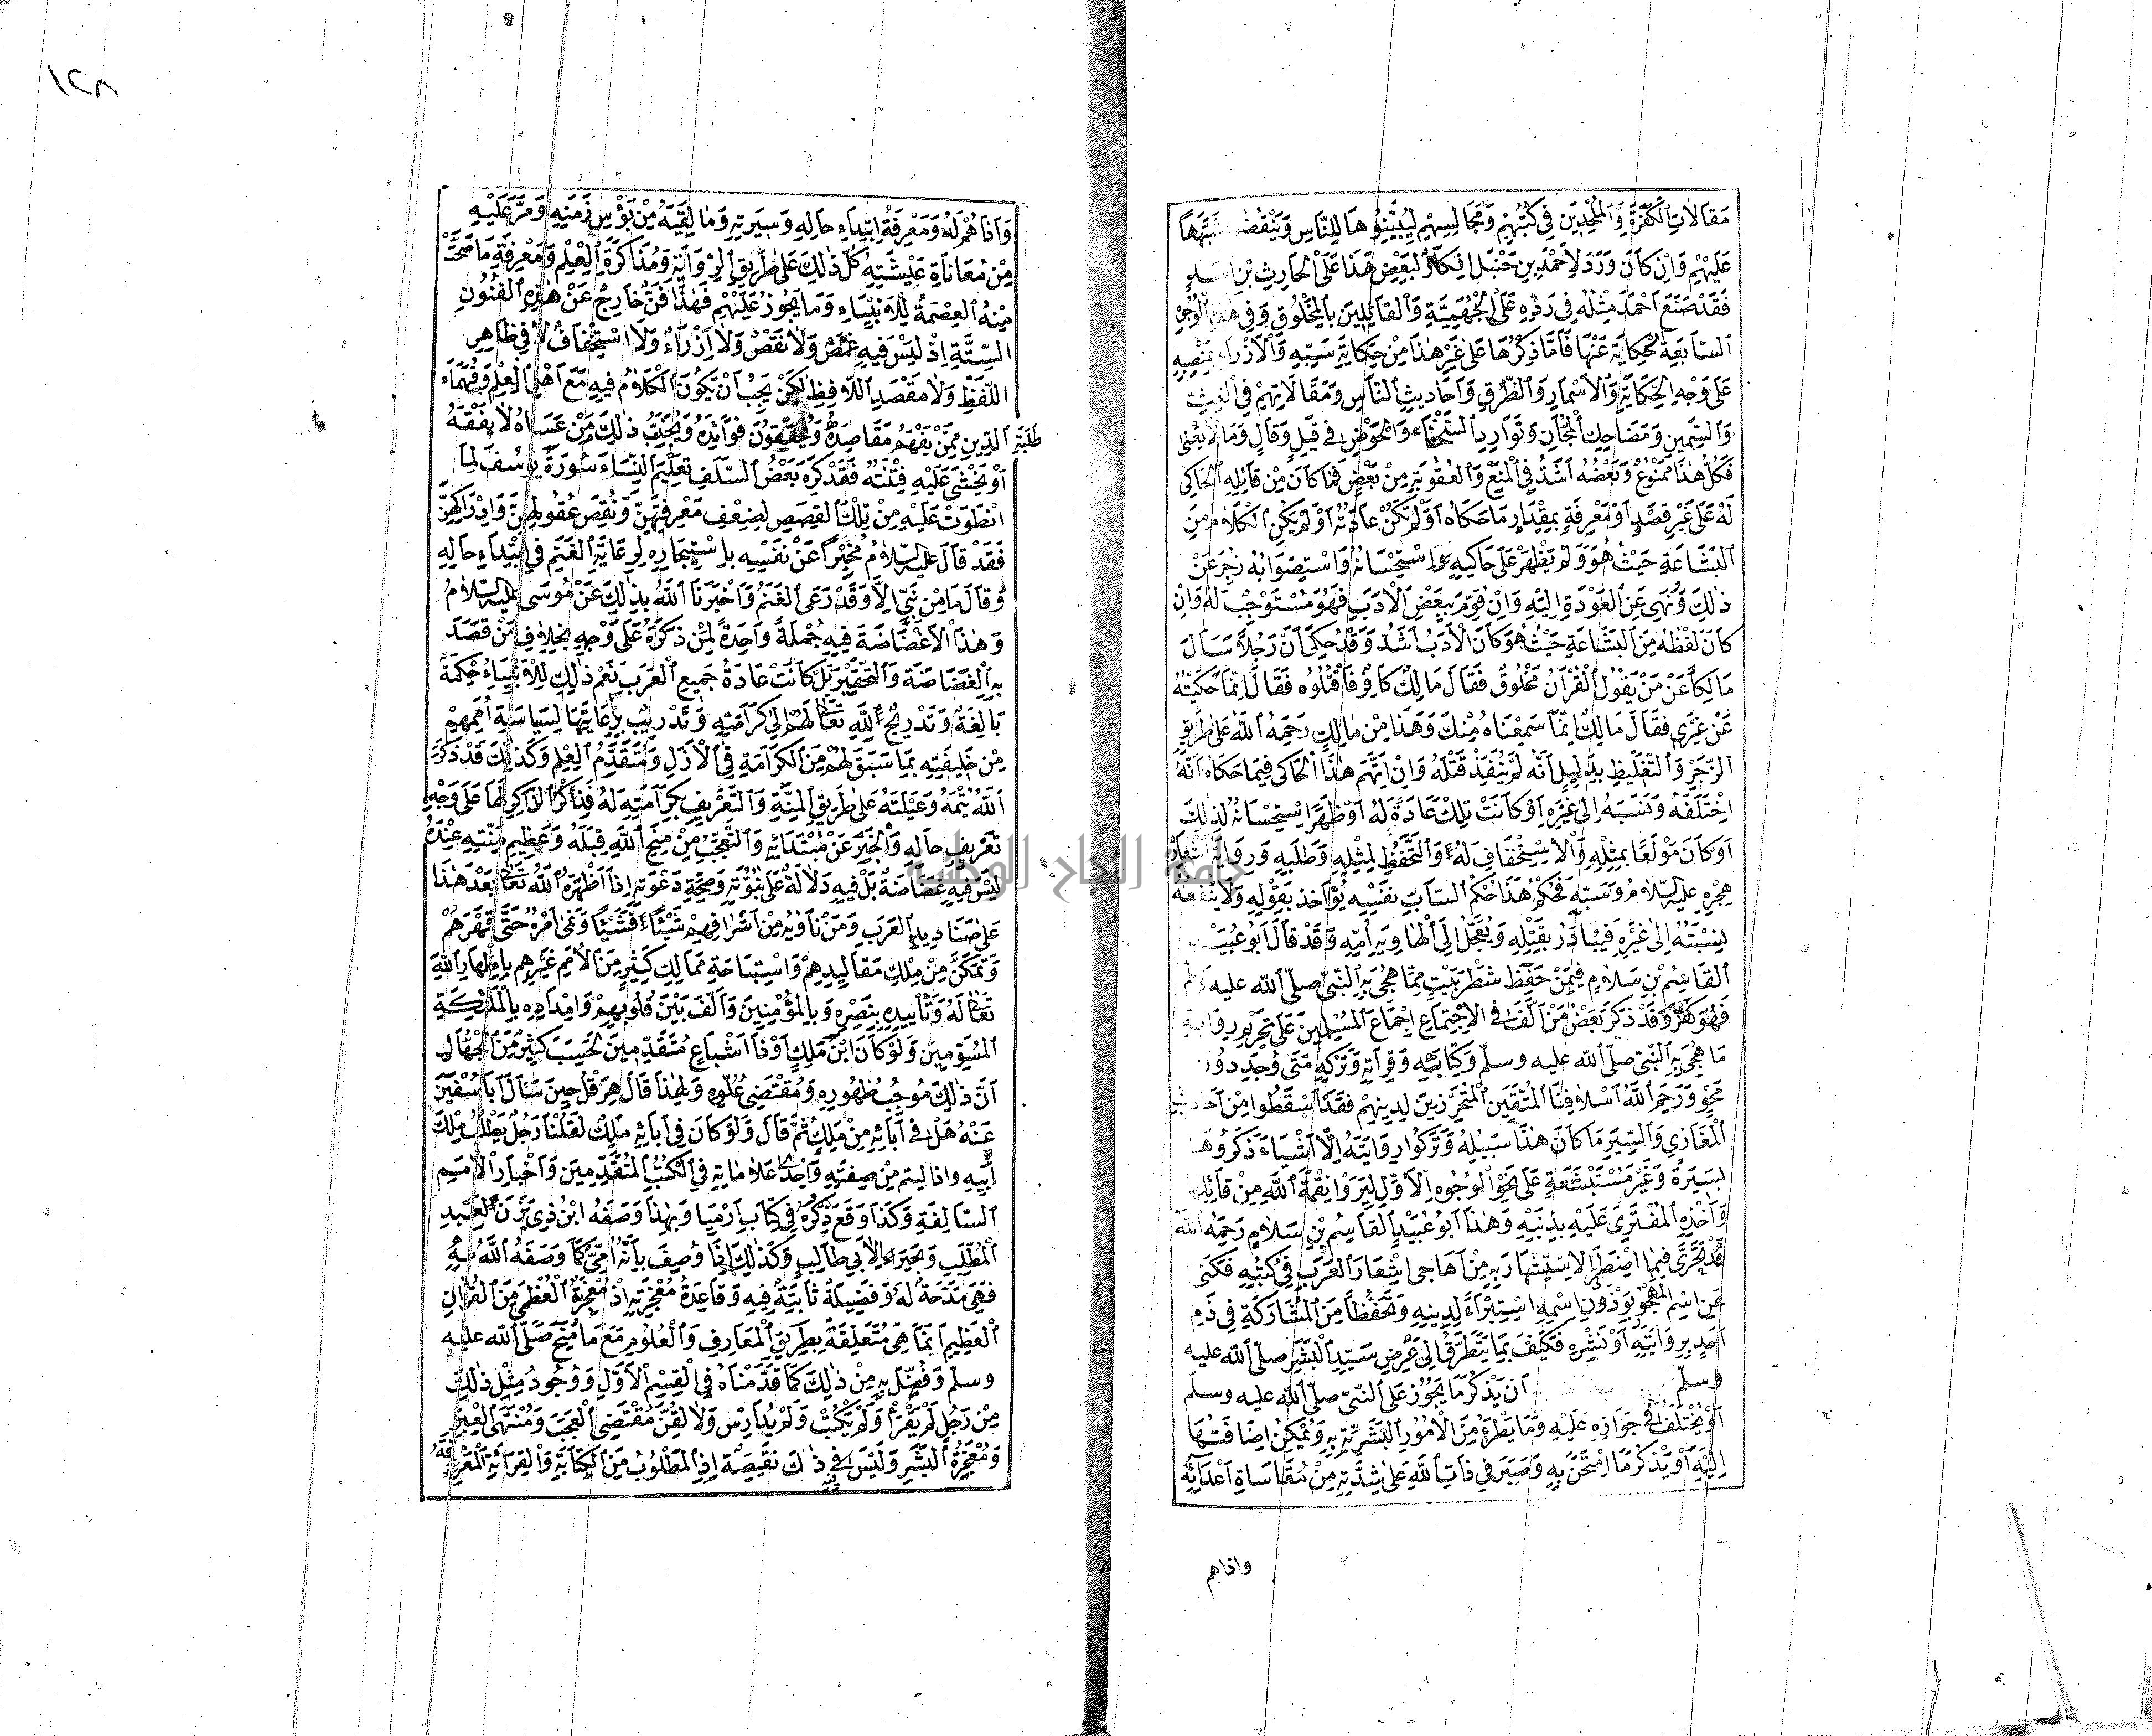 مَقَالَاتِ الْكَفَرَةِ وَالْمُلْحِدِينَ فِي كُتُبِهِمْ وَمَجَالِسِهِمْ لِيُبَيِّنُوهَا لِلنَّاسِ وَيَنْقُضُوا شُبَهَهَا
عَلَيْهِمْ وَاِنْ كَانَ وَرَدَ لِاَحْمَدَ بْنِ حَنْبَلٍ اِنْكَارٌ لِبَعْضِ هَذَا عَلَى الْحَارِثِ بْنِ اَسَدٍ
فَقَدْ صَنَعَ اَحْمَدُ مِثْلَهُ فِي رَدِّهِ عَلَى الْجَهْمِيَّةِ وَالْقَائِلِينَ بِالْمَخْلُوقِ وَفِي هٰذِهِ الْوُجُوهِ
السَّابِغَةِ الْحِكَايَةُ عَنْهَا فَاَمَّا ذِكْرُهَا عَلَى غَيْرِ هٰذَا مِنْ حِكَايَةِ سَبِّهِ وَالْاِزْرَاءِ بِمَنْصِبِهِ
عَلَى وَجْهِ الْحِكَايَةِ وَالْاَسْمَارِ وَالطُّرَفِ وَاَحَادِيثِ النَّاسِ وَمَقَالَاتِهِمْ فِي الْغَثِّ
وَالسَّمِينِ وَمَضَاحِكِ الْمُجَّانِ وَنَوَادِرِ السُّخَفَاءِ وَالْخَوْضِ فِي قِيلَ وَقَالَ وَمَا لَا يَعْنِى
فَكُلُّ هٰذَا مَمْنُوعٌ وَبَعْضُهُ اَشَدُّ فِي الْمَنْعِ وَالْعُقُوبَةِ مِنْ بَعْضٍ فَمَا كَانَ مِنْ قَائِلِهِ الْحَاكِى
لَهُ عَلَى غَيْرِ قَصْدٍ اَوْ مَعْرِفَةٍ بِمِقْدَارِ مَا حَكَاهُ اَوْ لَمْ تَكُنْ عَادَتُهُ اَوْ لَمْ يَكُنِ الْكَلَامُ مِنَ
الْبَشَاعَةِ حَيْثُ هُوَ وَلَمْ يَظْهَرْ عَلَى حَاكِيهِ اسْتِحْسَانُهُ وَاسْتِصْوَابُهُ زُجِرَ عَنْ
ذٰلِكَ وَنُهِيَ عَنِ الْعَوْدَةِ اِلَيْهِ وَاِنْ قُوِّمَ بِبَعْضِ الْاَدَبِ فَهُوَ مُسْتَوْجِبٌ لَهُ وَاِنْ
كَانَ لَفْظُهُ مِنَ الْبَشَاعَةِ حَيْثُ هُوَ كَانَ الْاَدَبُ اَشَدَّ وَقَدْ حُكِىَ اَنَّ رَجُلًا سَاَلَ
مَالِكًا عَنْ مَنْ يَقُولُ الْقُرْآنُ مَخْلُوقٌ فَقَالَ مَالِكٌ كَافِرٌ فَاقْتُلُوهُ فَقَالَ اِنَّمَا حَكَيْتُهُ
عَنْ غَيْرِى فَقَالَ مَالِكٌ اِنَّمَا سَمِعْنَاهُ مِنْكَ وَهَذَا مِنْ مَالِكٍ رَحِمَهُ اللّٰهُ عَلَى طَرِيقِ
الزَّجْرِ وَالتَّغْلِيظِ بِدَلِيلِ اَنَّهُ لَمْ يُنَفِّذْ قَتْلَهُ وَاِنِ اتُّهِمَ هٰذَا الْحَاكِى فِيمَا حَكَاهُ اَنَّهُ
اخْتَلَقَهُ وَنَسَبَهُ اِلَى غَيْرِهِ اَوْ كَانَتْ تِلْكَ عَادَةً لَهُ اَوْ ظَهَرَ اسْتِحْسَانُهُ لِذٰلِكَ
اَوْ كَانَ مُولَعًا بِمِثْلِهِ وَالْاِسْتِخْفَافِ لَهُ وَالتَّحَفُّظِ لِمِثْلِهِ وَطَلَبِهِ وَرِوَايَةِ اَشْعَارِ
هَجْرِهِ عليه السلام وَسَبِّهِ فَحُكْمُ هَذَا حُكْمُ السَّابِّ نَفْسِهِ يُؤَاخَذُ بِقَوْلِهِ وَلَا يَنْفَعُهُ
نِسْبَتُهُ اِلَى غَيْرِهِ فَيُبَادَرُ بِقَتْلِهِ وَيُعَجَّلُ اِلَى الْهَاوِيَةِ اُمِّهِ وَقَدْ قَالَ اَبُو عُبَيْدٍ
الْقَاسِمُ بْنُ سَلَامٍ فِيمَنْ حَفِظَ شَطْرَ بَيْتٍ مِمَّا هُجِىَ بِهِ النَّبِىُّ صلّى الله عليه وسلم
فَهُوَ كُفْرٌ وَقَدْ ذَكَرَ بَعْضُ مَنْ اَلَّفَ فِي الْاِجْتِمَاعِ اِجْمَاعَ الْمُسْلِمِينَ عَلَى تَحْرِيمِ رِوَايَةِ
مَا هُجِىَ بِهِ النَّبِىُّ صلّى الله عليه وسلّم وَكِتَابَتِهِ وَقِرَاءَتِهِ وَتَرْكِهِ مَتَى وُجِدَ دُونَ
مَحْوٍ وَرَحِمَ اللّٰهُ اَسْلَافَنَا الْمُتَّقِينَ الْمُتَحَرِّزِينَ لِدِينِهِمْ فَقَدْ اَسْقَطُوا مِنْ اَحَادِيثِ
الْمَغَازِى وَالسِّيَرِ مَا كَانَ هٰذَا سَبِيلُهُ وَتَرَكُوا رِوَايَتَهُ اِلَّا اَشْيَاءَ ذَكَرُوهَا
يَسِيرَةً وَغَيْرَ مُسْتَبْشَعَةٍ عَلَى نَحْوِ الْوُجُوهِ الْاُوَلِ لِيَرَوْا نِقْمَةَ اللّٰهِ مِنْ قَائِلِهَا
وَاَخْذِهِ الْمُفْتَرِى عَلَيْهِ بِذَنْبِهِ وَهٰذَا اَبُو عُبَيْدٍ الْقَاسِمُ بْنُ سَلَامٍ رَحِمَهُ اللّٰهُ
قَدْ تَحَرَّى فِيمَا اضْطُرَّ الْاِسْتِشْهَادَ بِهِ مِنْ اَهَاجِى اَشْعَارِ الْعَرَبِ فِي كُتُبِهِ فَكَنَى
عَنِ اسْمِ الْمَهْجُوِّ بِوَزْنِ اسْمِهِ اسْتِبْرَاءً لِدِينِهِ وَتَحَفُّظًا مِنَ الْمُشَارَكَةِ فِي ذَمِّ
اَحَدٍ بِرِوَايَتِهِ اَوْ نَشْرِهِ فَكَيْفَ بِمَا يَتَطَرَّقُ اِلَى عِرْضِ سَيِّدِ الْبَشَرِ صلّى الله عليه
وسلّم اَنْ يَذْكُرَ مَا يَجُوزُ عَلَى النَّبِىِّ صلّى الله عليه وسلّم
اَوْ يُخْتَلَفُ فِي جَوَازِهِ عَلَيْهِ وَمَا يَطْرَءُ مِنَ الْاُمُورِ الْبَشَرِيَّةِ بِهِ وَيُمْكِنُ اِضَافَتُهَا
اِلَيْهِ اَوْ يَذْكُرَ مَا امْتُحِنَ بِهِ وَصَبَرَ فِي ذَاتِ اللّٰهِ عَلَى شِدَّتِهِ مِنْ مُقَاسَاةِ اَعْدَائِهِ
واذاهم
١٢٨
وَاَذَاهُمْ لَهُ وَمَعْرِفَةِ ابْتِدَاءِ حَالِهِ وَسِيرَتِهِ وَمَا لَقِيَهُ مِنْ بُؤْسِ زَمَنِهِ وَمَرَّ عَلَيْهِ
مِنْ مُعَانَاةِ عِيشَتِهِ كُلُّ ذٰلِكَ عَلَى طَرِيقِ الرِّوَايَةِ وَمُذَاكَرَةِ الْعِلْمِ وَمَعْرِفَةِ مَا صَحَّتْ
مِنْهُ الْعِصْمَةُ لِلْاَنْبِيَاءِ وَمَا يَجُوزُ عَلَيْهِمْ فَهٰذَا فَنٌّ خَارِجٌ عَنْ هٰذِهِ الْفُنُونِ
السِّتَّةِ اِذْ لَيْسَ فِيهِ غَمْصٌ وَلَا نَقْصٌ وَلَا اِزْرَاءٌ وَلَا اسْتِخْفَافٌ لَا فِي ظَاهِرِ
اللَّفْظِ وَلَا مَقْصَدِ اللَّافِظِ لٰكِنْ يَجِبُ اَنْ يَكُونَ الْكَلَامُ فِيهِ مَعَ اَهْلِ الْعِلْمِ وَفُهَمَاءِ
طَلَبَةِ الدِّينِ مِمَّنْ يَفْهَمُ مَقَاصِدَهُ وَيُحَقِّقُونَ فَوَائِدَهُ وَيُجَنَّبُ ذٰلِكَ مَنْ عَسَاهُ لَا يَفْقَهُ
اَوْ يُخْشَى عَلَيْهِ فِتْنَتُهُ فَقَدْ كَرِهَ بَعْضُ السَّلَفِ تَعْلِيمَ النِّسَاءِ سُورَةَ يُوسُفَ لِمَا
انْطَوَتْ عَلَيْهِ مِنْ تِلْكَ الْقِصَصِ لِضَعْفِ مَعْرِفَتِهِنَّ وَنَقْصِ عُقُولِهِنَّ وَاِدْرَاكِهِنَّ
فَقَدْ قَالَ عليه السلام مُخْبِرًا عَنْ نَفْسِهِ بِاسْتِيجَارِهِ لِرِعَايَةِ الْغَنَمِ فِي ابْتِدَاءِ حَالِهِ
وَقَالَ مَا مِنْ نَبِيٍّ اِلَّا وَقَدْ رَعَى الْغَنَمَ وَاَخْبَرَنَا اللّٰهُ بِذٰلِكَ عَنْ مُوسَى عليه السلام
وَهٰذَا لَا غَضَاضَةَ فِيهِ جُمْلَةً وَاحِدَةً لِمَنْ ذَكَرَهُ عَلَى وَجْهِهِ بِخِلَافِ مَنْ قَصَدَ
بِهِ الْغَضَاضَةَ وَالتَّحْقِيرَ بَلْ كَانَتْ عَادَةُ جَمِيعِ الْعَرَبِ نَعَمْ ذٰلِكَ لِلْاَنْبِيَاءِ حِكْمَةٌ
بَالِغَةٌ وَتَدْرِيجٌ لِلّٰهِ تَعَالَى لَهُمْ اِلَى كَرَامَتِهِ وَتَدْرِيبٌ بِرِعَايَتِهَا لِسِيَاسَةِ اُمَمِهِمْ
مِنْ خَلِيقَتِهِ بِمَا سَبَقَ لَهُمْ مِنَ الْكَرَامَةِ فِي الْاَزَلِ وَمُتَقَدَّمِ الْعِلْمِ وَكَذٰلِكَ قَدْ ذَكَرَ
اللّٰهُ يُتْمَهُ وَعَيْلَتَهُ عَلَى طَرِيقِ الْمِنَّةِ وَالتَّعْرِيفِ بِكَرَامَتِهِ لَهُ فَذِكْرُ الذَّاكِرِ لَهَا عَلَى وَجْهِ
تَعْرِيفِ حَالِهِ وَالْخَبَرِ عَنْ مُبْتَدَائِهِ وَالتَّعَجُّبِ مِنْ مِنَحِ اللّٰهِ قِبَلَهُ وَعَظِيمِ مِنَّتِهِ عِنْدَهُ
لَيْسَ فِيهِ غَضَاضَةٌ بَلْ فِيهِ دَلَالَةٌ عَلَى نُبُوَّتِهِ وَصِحَّةِ دَعْوَتِهِ اِذَا اَظْهَرَهُ اللّٰهُ تَعَالَى بَعْدَ هٰذَا
عَلَى صَنَادِيدِ الْعَرَبِ وَمَنْ نَاوَاهُ مِنْ اَشْرَافِهِمْ شَيْئًا فَشَيْئًا وَنَمَى اَمْرُهُ حَتَّى قَهَرَهُمْ
وَتَمَكَّنَ مِنْ مِلْكِ مَقَالِيدِهِمْ وَاسْتِبَاحَةِ مَمَالِكِ كَثِيرٍ مِنَ الْاُمَمِ غَيْرِهِمْ بِاِظْهَارِ اللّٰهِ
تَعَالَى لَهُ وَتَأْيِيدِهِ بِنَصْرِهِ وَبِالْمُؤْمِنِينَ وَاَلَّفَ بَيْنَ قُلُوبِهِمْ وَاِمْدَادِهِ بِالْمَلٰئِكَةِ
الْمُسَوِّمِينَ وَلَوْ كَانَ ابْنَ مَلِكٍ اَوْ ذَا اَشْيَاعٍ مُتَقَدِّمِينَ لَحَسِبَ كَثِيرٌ مِنَ الْجُهَّالِ
اَنَّ ذٰلِكَ مُوجِبُ ظُهُورِهِ وَمُقْتَضِى عُلُوِّهِ وَلِهٰذَا قَالَ هِرَقْلُ حِينَ سَاَلَ اَبَا سُفْيٰنَ
عَنْهُ هَلْ فِي آبَائِهِ مِنْ مَلِكٍ ثُمَّ قَالَ وَلَوْ كَانَ فِي آبَائِهِ مَلِكٌ لَقُلْنَا رَجُلٌ يَطْلُبُ مُلْكَ
اَبِيهِ واذا ليتم مِنْ صِفَتِهِ وَاِحْدَى عَلَامَاتِهِ فِي الْكُتُبِ الْمُتَقَدِّمِينَ وَاَخْبَارِ الْاُمَمِ
السَّالِفَةِ وَكَذَا وَقَعَ ذِكْرُهُ فِي كِتَابِ اَرْمِيَا وَبِهٰذَا وَصَفَهُ ابْنُ ذِي يَزَنَ لِعَبْدِ
الْمُطَّلِبِ وَبَحِيرَاءُ لِاَبِى طَالِبٍ وَكَذٰلِكَ اِذَا وُصِفَ بِاَنَّهُ اُمِّىٌّ كَمَا وَصَفَهُ اللّٰهُ بِهِ
فَهِىَ مِدْحَةٌ لَهُ وَفَضِيلَةٌ ثَابِتَةٌ فِيهِ وَقَاعِدَةُ مُعْجِزَتِهِ اِذْ مُعْجِزَتُهُ الْعُظْمَى مِنَ الْقُرْاٰنِ
الْعَظِيمِ اِنَّمَا هِىَ مُتَعَلِّقَةٌ بِطَرِيقِ الْمَعَارِفِ وَالْعُلُومِ مَعَ مَا مُنِحَ صَلَّى الله عليه
وسلّم وَفُضِّلَ بِهِ مِنْ ذٰلِكَ كَمَا قَدَّمْنَاهُ فِي الْقِسْمِ الْاَوَّلِ وَوُجُودُ مِثْلِ ذٰلِكَ
مِنْ رَجُلٍ لَمْ يَقْرَأْ وَلَمْ يَكْتُبْ وَلَمْ يُدَارِسْ وَلَا لُقِّنَ مُقْتَضِى الْعَجَبِ وَمُنْتَهَى الْعِبَرِ
وَمُعْجِزَةُ الْبَشَرِ وَلَيْسَ فِي ذٰلِكَ نَقِيصَةٌ اِذِ الْمَطْلُوبُ مِنَ الْكِتَابَةِ وَالْقِرَاءَةِ الْمَعْرِفَةُ
جامعة النجاح الوطنية